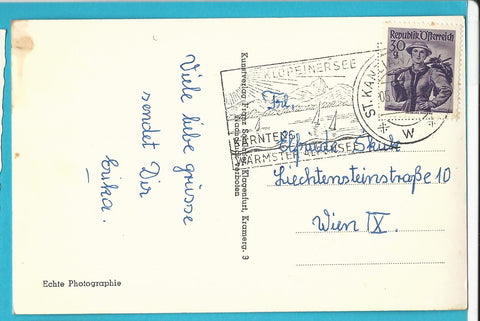 Viele liebe grüsse
sendet Dir
Erika.
Echte Photographie
Kunstverlag Franz Schilcher, Klagenfurt, Kramerg. 3
Nachdruck verboten
KLOPEINERSEE
KÄRNTENS
WÄRMSTER ALPENSEE
ST. KAN
W
Republik Österreich
30
g
Frl.
Elfriede Skuk
Liechtensteinstraße 10
Wien IX.